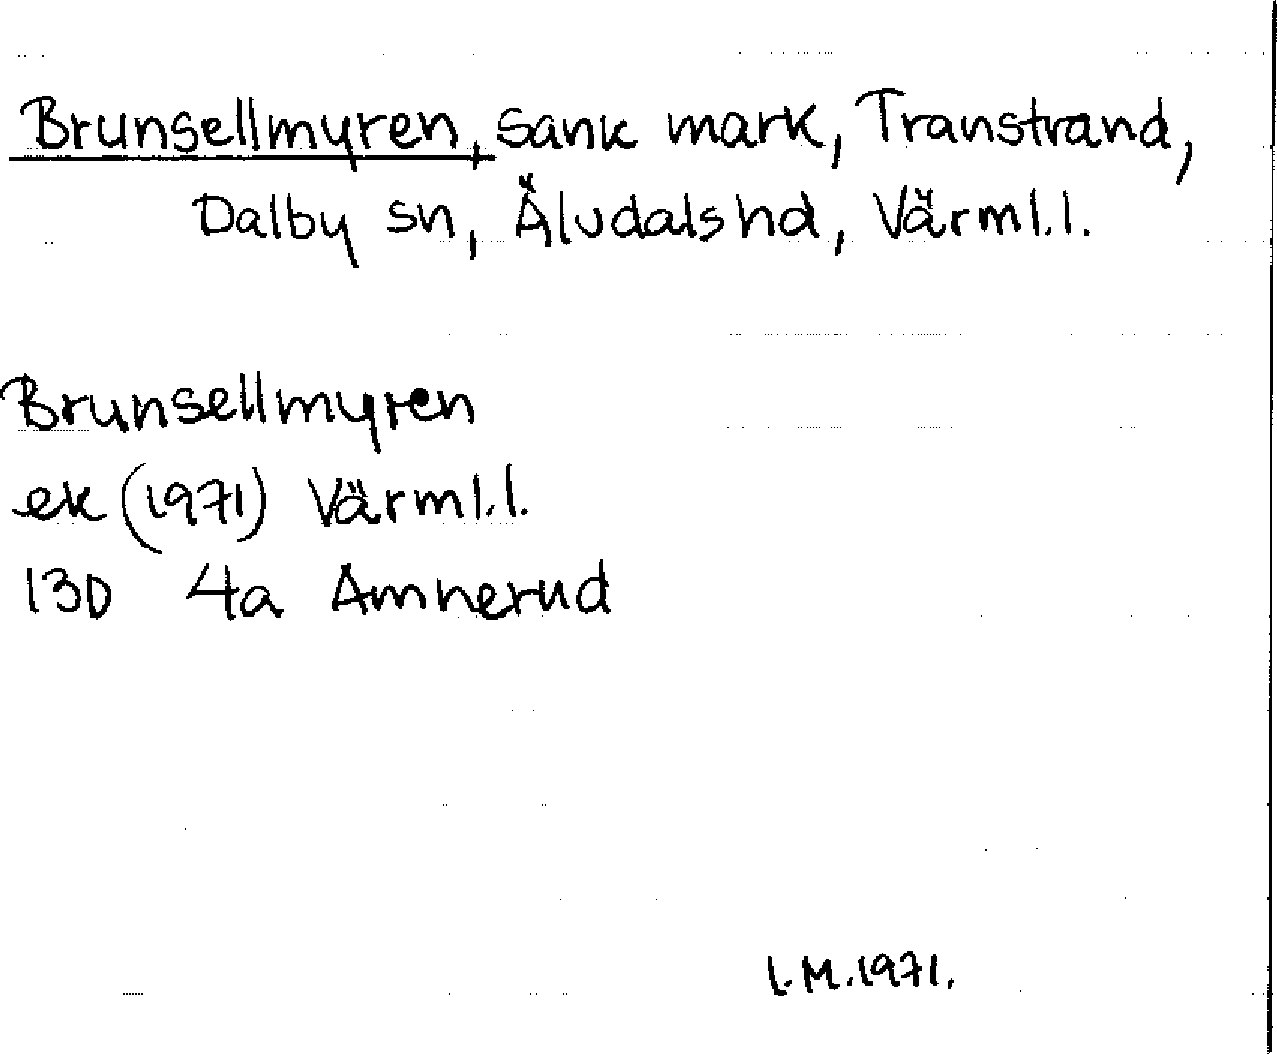 Brunsellmyren, sank mark, Transtrand,
Dalby sn, Älvdals hd, Värml.l.
Brunsellmyren
ek (1971) Värml.l.
13D 4a Amnerud
I.M.1971.